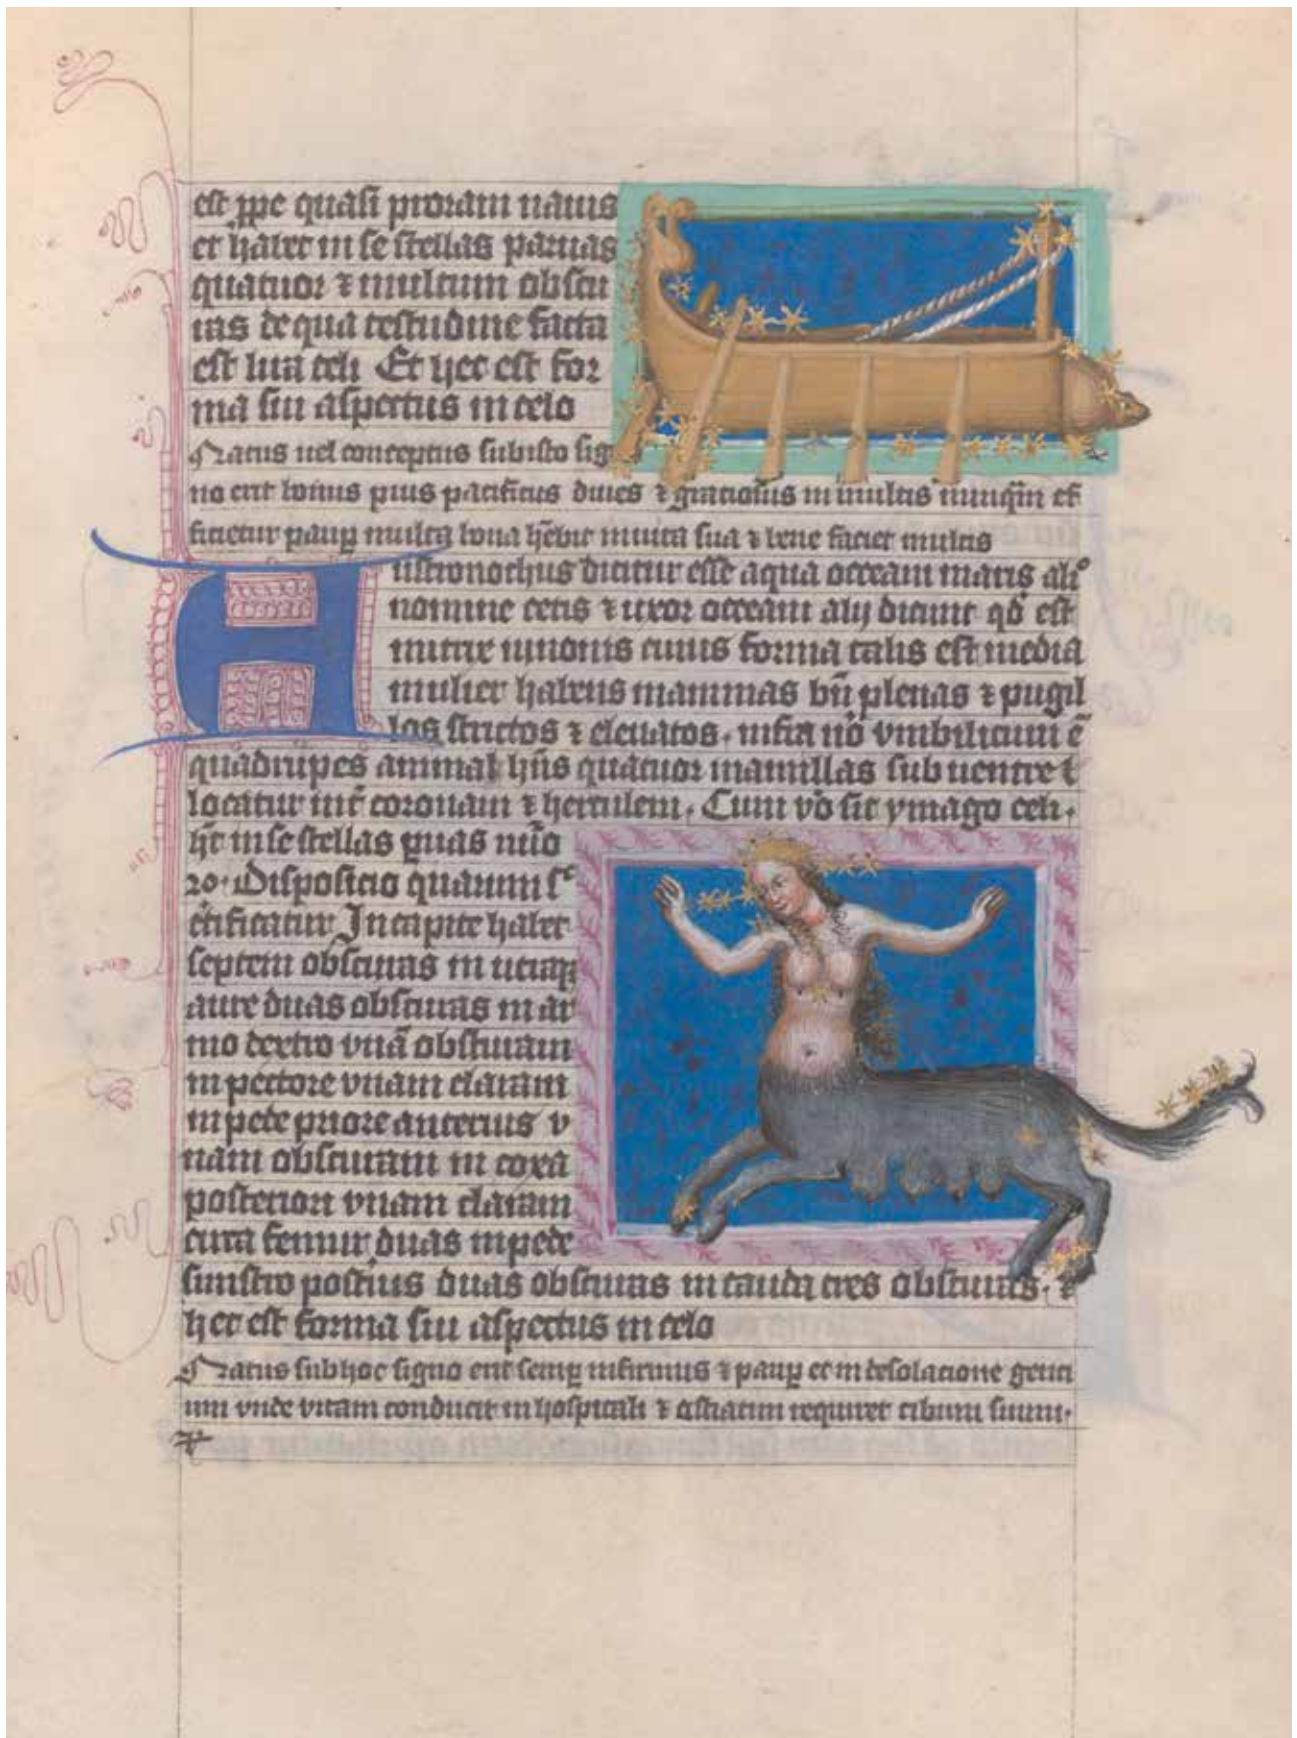 est ꝓpe quasi proram nauis
et habet in se stellas paruas
quatuor ⁊ multum obscu
ras de qua testudine facta
est lira celi Et hec est for
ma siu aspectus in celo
Natus uel conceptus sub isto sig
no erit bonus pius pacificus diues ⁊ graciosus in multis nunq̄m ef
ficietur paup̲ multa bona hēbit in uita sua ⁊ bene faciet multis
Austronothus dicitur esse aqua occeani maris alio
nomine cetis ⁊ uxor occeani alij dicunt qd̄ est
nutrix iunonis cuius forma talis est media
mulier habens mammas bn̄ plenas ⁊ pugil
los strictos ⁊ eleuatos. infra uo vmbilicum ē
quadrupes animal hn̄s quatuor mamillas sub uentre ⁊
locatur int̄ coronam ⁊ herculem. Cum vo sit ymago celi.
ht̄ in se stellas
20. Disposicio quarum sc
c̄tificatur In capite habet
septem obscuras in utraq̲
aure duas obscuras in ar
mo dextro vnā obscuram
in pectore vnam claram
in pede priore anterius v
nam obscuram in coxa
posteriori vnam claram
circa femur duas in pede
sinistro post̄ius duas obscuras in cauda tres obscuras. ⁊
hec est forma siu aspectus in celo
Natus sub hoc signo erit semp̲ infirmus ⁊ paup̲ et in desolacione genci
um vnde vitam conducit in hospitali ⁊ ostiatim requiret cibum suum.